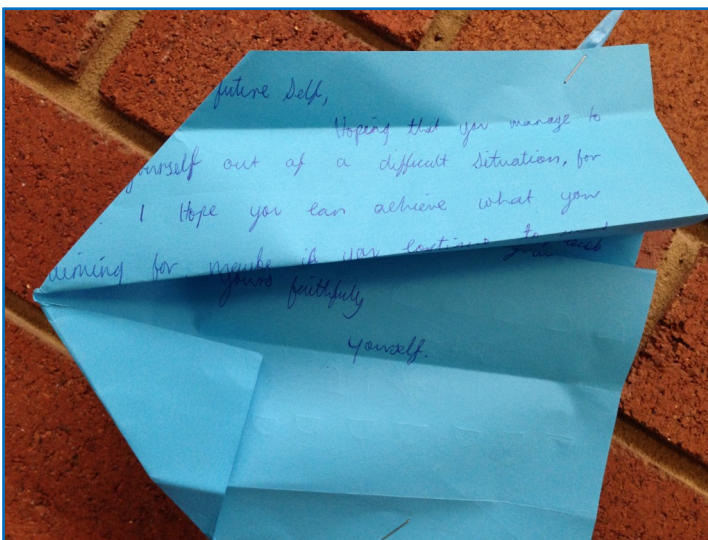 future Self,
Hoping that you manage to
yourself out of a difficult Situation, for
I Hope you can achieve what you
aiming for, maybe if you continue to
yours faithfully
Yourself.